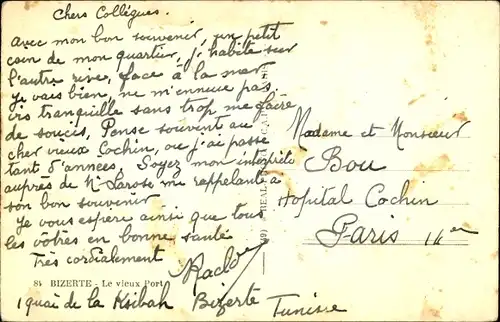 Chers Collégues.
avec mon bon souvenir, un petit
coin de mon quartier, j'habite sur
l'autre rive, face à la mer
Je vais bien, ne m'ennuie pas.
vis tranquille sans trop me faire
de soucis. Pense souvent au
cher vieux Cochin, ou j'ai passé
tant d'années, Soyez mon interpréte
auprès de Mr Larose me rappelant à
son bon souvenir
Je vous espère ainsi que tous
les votres en bonne santé
Très cordialement
Madame et Monsieur
Bou
Hopital Cochin
Paris 14er
84 BIZERTE - Le vieux Port
1 quai de la Ksibah Bizerte Tunisie